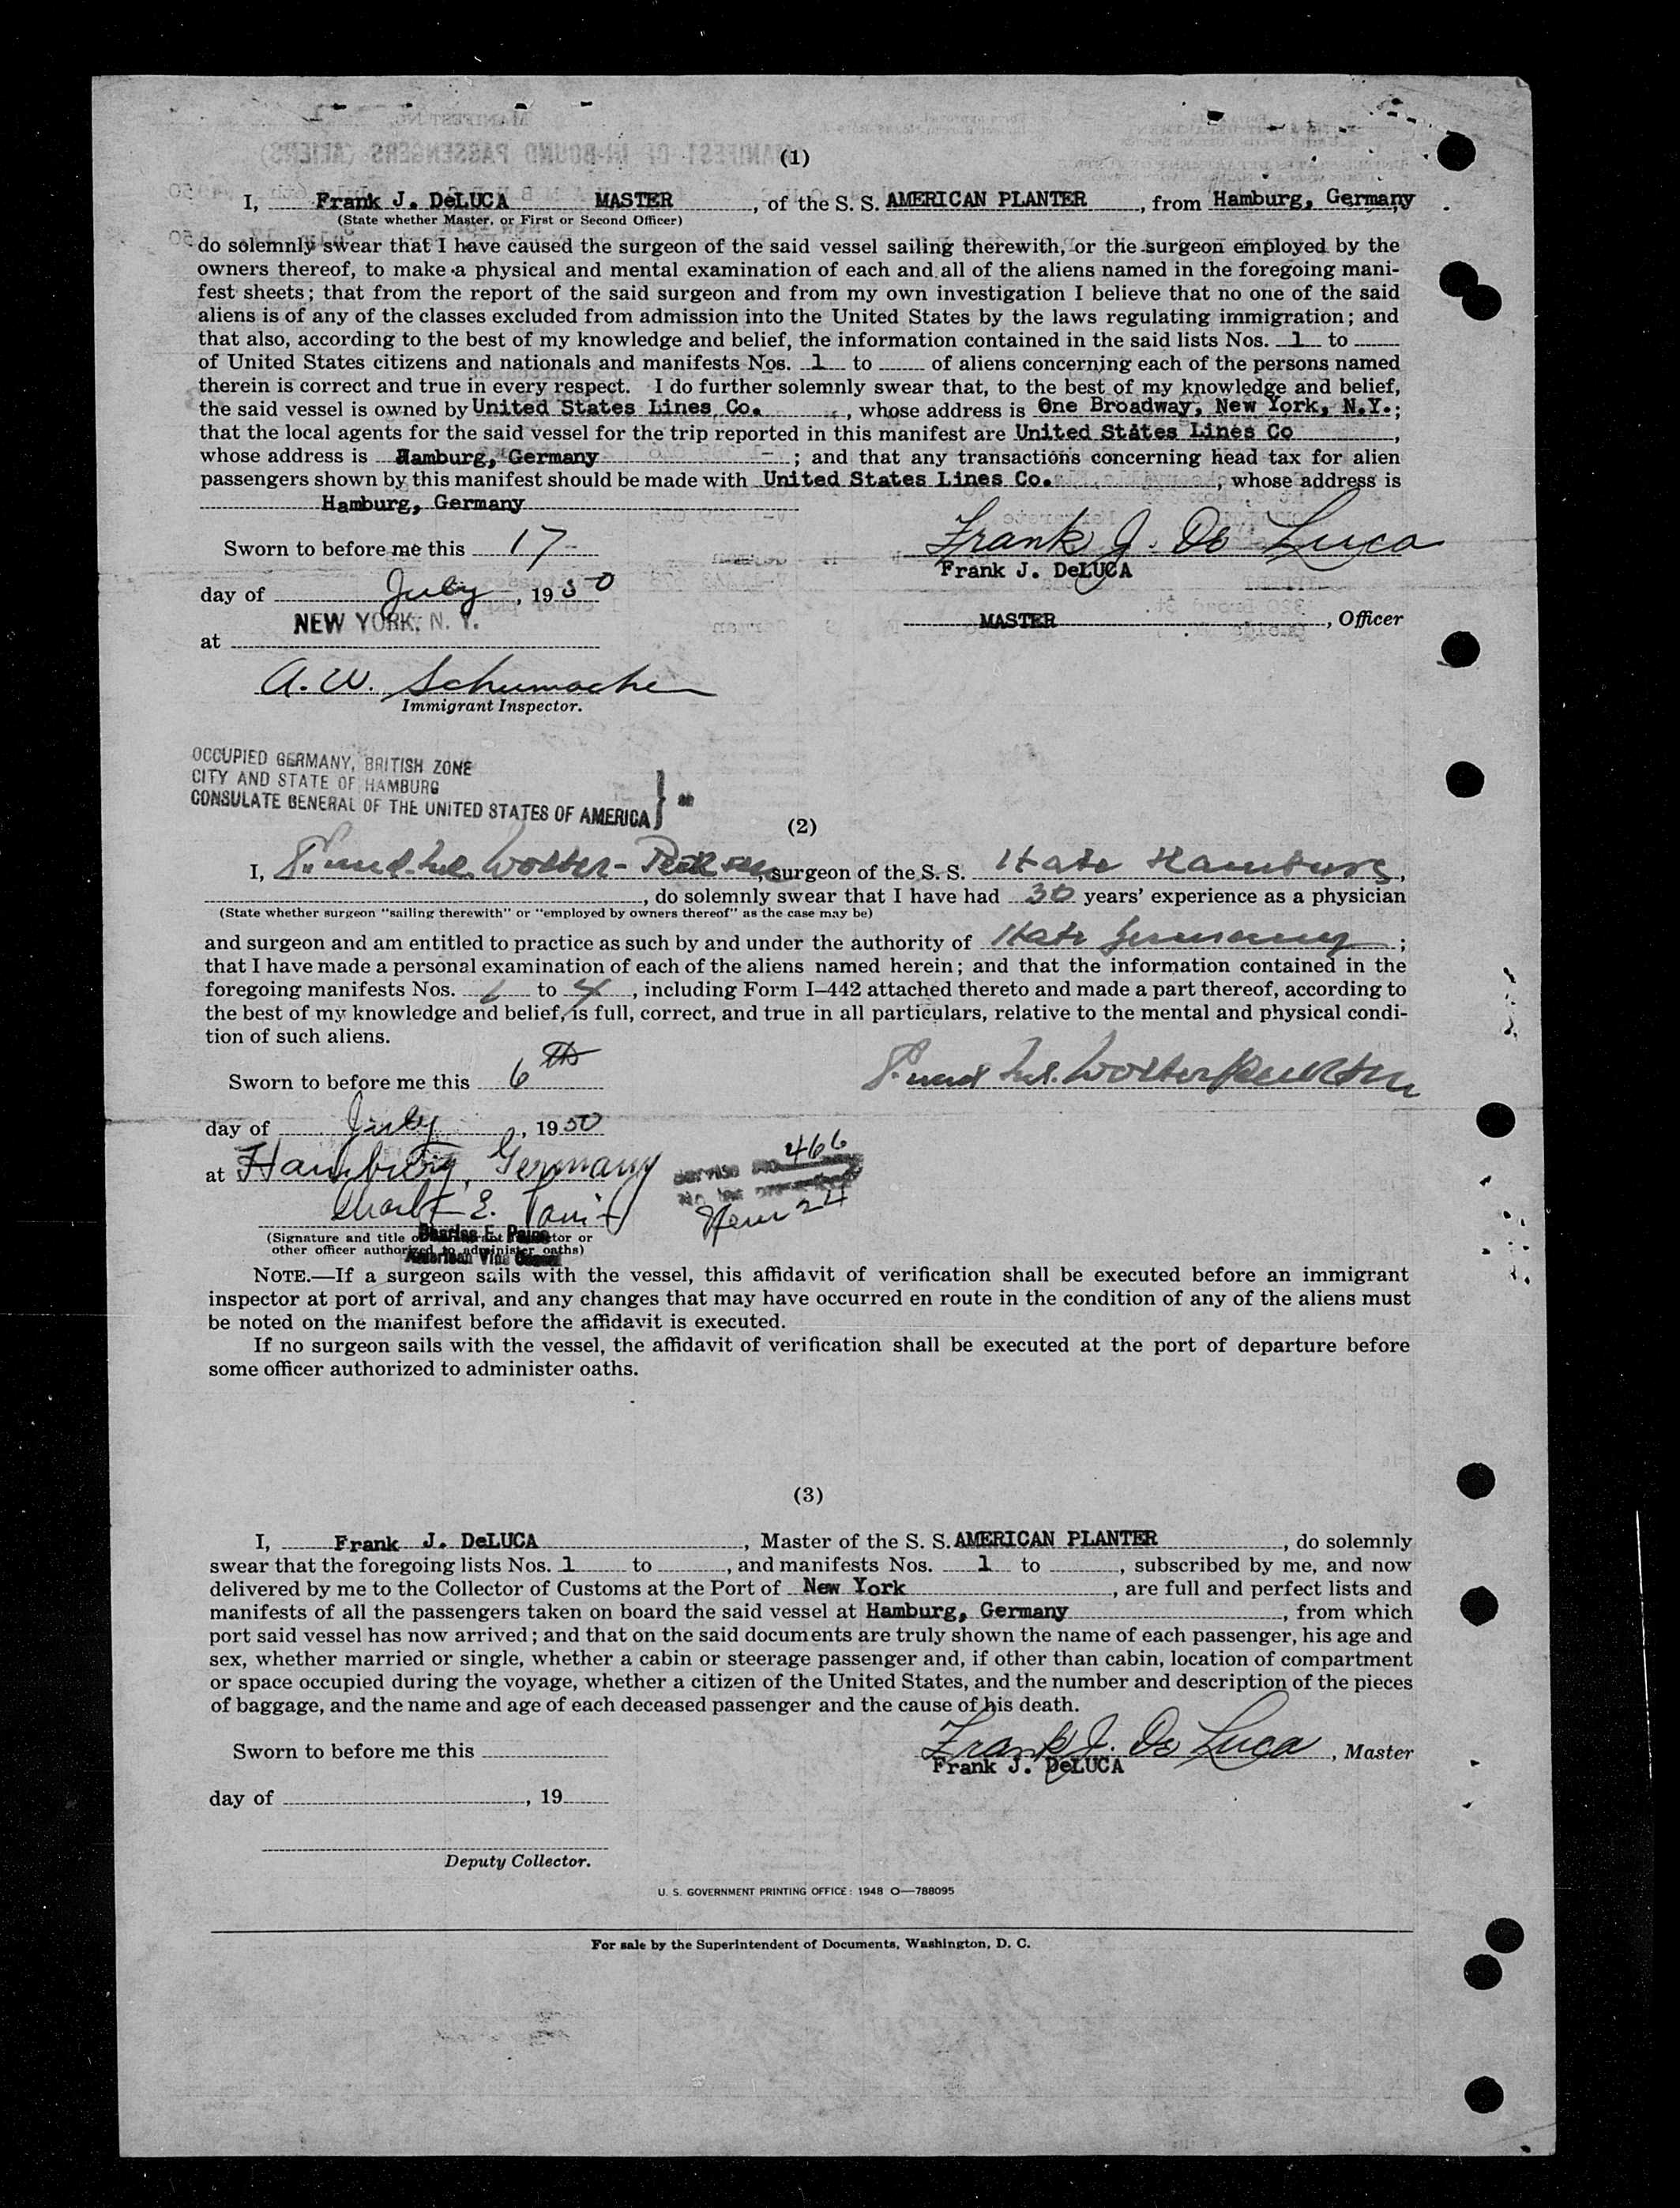 (1)
I, Frank J. DeLUCA MASTER, of the S. S. AMERICAN PLANTER, from Hamburg, Germany
(State whether Master, or First or Second Officer)
do solemnly swear that I have caused the surgeon of the said vessel sailing therewith, or the surgeon employed by the
owners thereof, to make a physical and mental examination of each and all of the aliens named in the foregoing mani-
fest sheets; that from the report of the said surgeon and from my own investigation I believe that no one of the said
aliens is of any of the classes excluded from admission into the United States by the laws regulating immigration; and
that also, according to the best of my knowledge and belief, the information contained in the said lists Nos. 1 to
of United States citizens and nationals and manifests Nos. 1 to of aliens concerning each of the persons named
therein is correct and true in every respect. I do further solemnly swear that, to the best of my knowledge and belief,
the said vessel is owned by United States Lines Co., whose address is One Broadway, New York, N.Y.;
that the local agents for the said vessel for the trip reported in this manifest are United States Lines Co,
whose address is Hamburg, Germany; and that any transactions concerning head tax for alien
passengers shown by this manifest should be made with United States Lines Co., whose address is
Hamburg, Germany
Sworn to before me this 17
Frank J. De Luca
Frank J. DeLUCA
day of July, 1950
MASTER, Officer
at NEW YORK, N. Y.
A. W. Schumacher
Immigrant Inspector.
OCCUPIED GERMANY, BRITISH ZONE
CITY AND STATE OF HAMBURG
CONSULATE GENERAL OF THE UNITED STATES OF AMERICA } ss
(2)
I, , surgeon of the S. S. State Hamburg,
, do solemnly swear that I have had 30 years' experience as a physician
(State whether surgeon "sailing therewith" or "employed by owners thereof" as the case may be)
and surgeon and am entitled to practice as such by and under the authority of State Germany;
that I have made a personal examination of each of the aliens named herein; and that the information contained in the
foregoing manifests Nos. 1 to 4, including Form I–442 attached thereto and made a part thereof, according to
the best of my knowledge and belief, is full, correct, and true in all particulars, relative to the mental and physical condi-
tion of such aliens.
Sworn to before me this 6th
day of July, 1950
at Hamburg, Germany
Service No. 466
Item 24
Charles E. Paine
(Signature and title of immigrant inspector or
other officer authorized to administer oaths)
Charles E. Paine
American Vice Consul
NOTE.—If a surgeon sails with the vessel, this affidavit of verification shall be executed before an immigrant
inspector at port of arrival, and any changes that may have occurred en route in the condition of any of the aliens must
be noted on the manifest before the affidavit is executed.
If no surgeon sails with the vessel, the affidavit of verification shall be executed at the port of departure before
some officer authorized to administer oaths.
(3)
I, Frank J. DeLUCA, Master of the S. S. AMERICAN PLANTER, do solemnly
swear that the foregoing lists Nos. 1 to , and manifests Nos. 1 to , subscribed by me, and now
delivered by me to the Collector of Customs at the Port of New York, are full and perfect lists and
manifests of all the passengers taken on board the said vessel at Hamburg, Germany, from which
port said vessel has now arrived; and that on the said documents are truly shown the name of each passenger, his age and
sex, whether married or single, whether a cabin or steerage passenger and, if other than cabin, location of compartment
or space occupied during the voyage, whether a citizen of the United States, and the number and description of the pieces
of baggage, and the name and age of each deceased passenger and the cause of his death.
Sworn to before me this
Frank J. De Luca, Master
Frank J. DeLUCA
day of , 19
Deputy Collector.
U. S. GOVERNMENT PRINTING OFFICE: 1948 O—788095
For sale by the Superintendent of Documents, Washington, D. C.